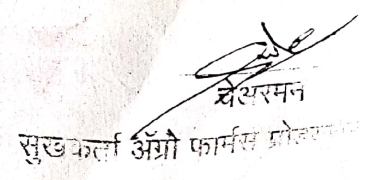 चेअरमन
सुखकर्ता ॲग्रो फार्मस